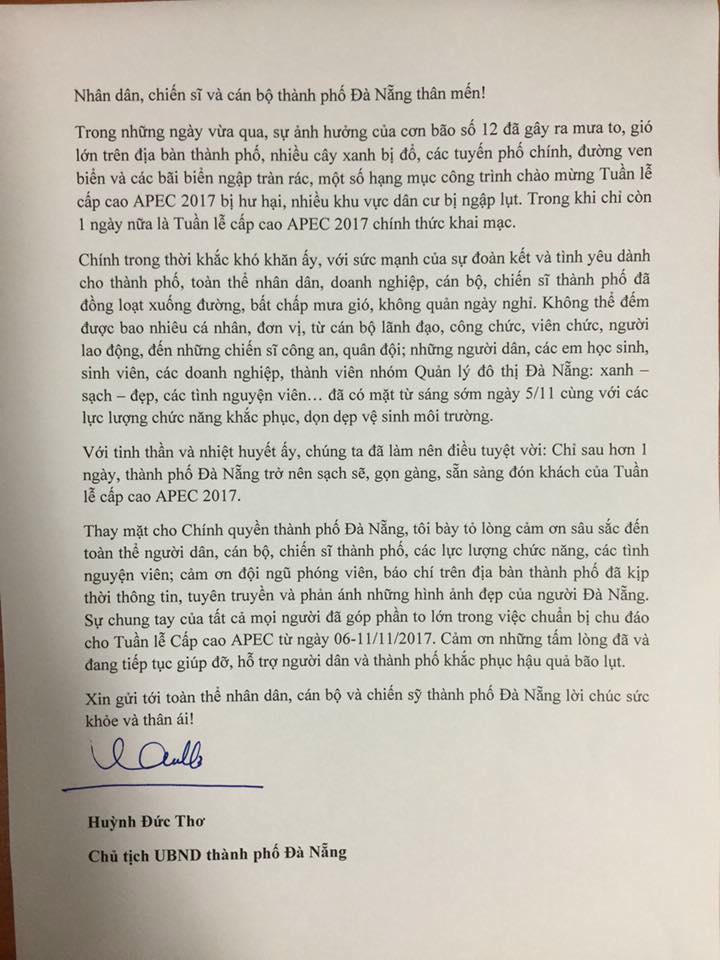 Nhân dân, chiến sĩ và cán bộ thành phố Đà Nẵng thân mến!
Trong những ngày vừa qua, sự ảnh hưởng của cơn bão số 12 đã gây ra mưa to, gió
lớn trên địa bàn thành phố, nhiều cây xanh bị đổ, các tuyến phố chính, đường ven
biển và các bãi biển ngập tràn rác, một số hạng mục công trình chào mừng Tuần lễ
cấp cao APEC 2017 bị hư hại, nhiều khu vực dân cư bị ngập lụt. Trong khi chỉ còn
1 ngày nữa là Tuần lễ cấp cao APEC 2017 chính thức khai mạc.
Chính trong thời khắc khó khăn ấy, với sức mạnh của sự đoàn kết và tình yêu dành
cho thành phố, toàn thể nhân dân, doanh nghiệp, cán bộ, chiến sĩ thành phố đã
đồng loạt xuống đường, bất chấp mưa gió, không quản ngày nghỉ. Không thể đếm
được bao nhiêu cá nhân, đơn vị, từ cán bộ lãnh đạo, công chức, viên chức, người
lao động, đến những chiến sĩ công an, quân đội; những người dân, các em học sinh,
sinh viên, các doanh nghiệp, thành viên nhóm Quản lý đô thị Đà Nẵng: xanh –
sạch – đẹp, các tình nguyện viên… đã có mặt từ sáng sớm ngày 5/11 cùng với các
lực lượng chức năng khắc phục, dọn dẹp vệ sinh môi trường.
Với tinh thần và nhiệt huyết ấy, chúng ta đã làm nên điều tuyệt vời: Chỉ sau hơn 1
ngày, thành phố Đà Nẵng trở nên sạch sẽ, gọn gàng, sẵn sàng đón khách của Tuần
lễ cấp cao APEC 2017.
Thay mặt cho Chính quyền thành phố Đà Nẵng, tôi bày tỏ lòng cảm ơn sâu sắc đến
toàn thể người dân, cán bộ, chiến sĩ thành phố, các lực lượng chức năng, các tình
nguyện viên; cảm ơn đội ngũ phóng viên, báo chí trên địa bàn thành phố đã kịp
thời thông tin, tuyên truyền và phản ánh những hình ảnh đẹp của người Đà Nẵng.
Sự chung tay của tất cả mọi người đã góp phần to lớn trong việc chuẩn bị chu đáo
cho Tuần lễ Cấp cao APEC từ ngày 06-11/11/2017. Cảm ơn những tấm lòng đã và
đang tiếp tục giúp đỡ, hỗ trợ người dân và thành phố khắc phục hậu quả bão lụt.
Xin gửi tới toàn thể nhân dân, cán bộ và chiến sỹ thành phố Đà Nẵng lời chúc sức
khỏe và thân ái!
Huỳnh Đức Thơ
Chủ tịch UBND thành phố Đà Nẵng